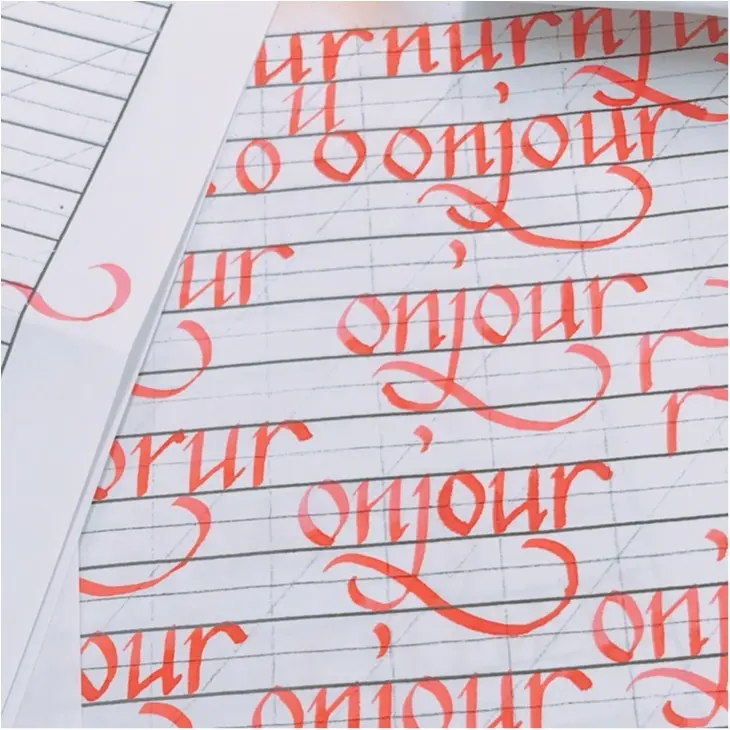 urnurnju
u
o o onjour
ur
onjour r
orur r
onjour
our onj
onjour